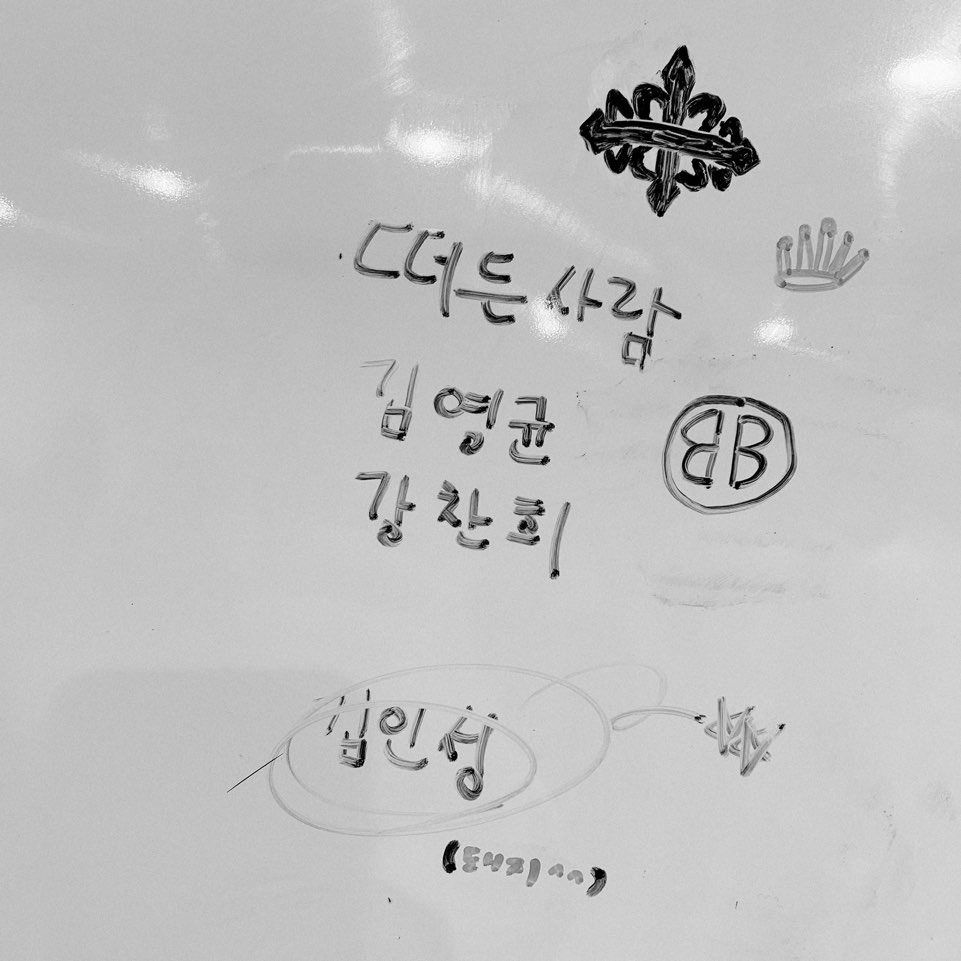 떠든 사람
김영균
강찬희
BB
김인성
(돼지^^)